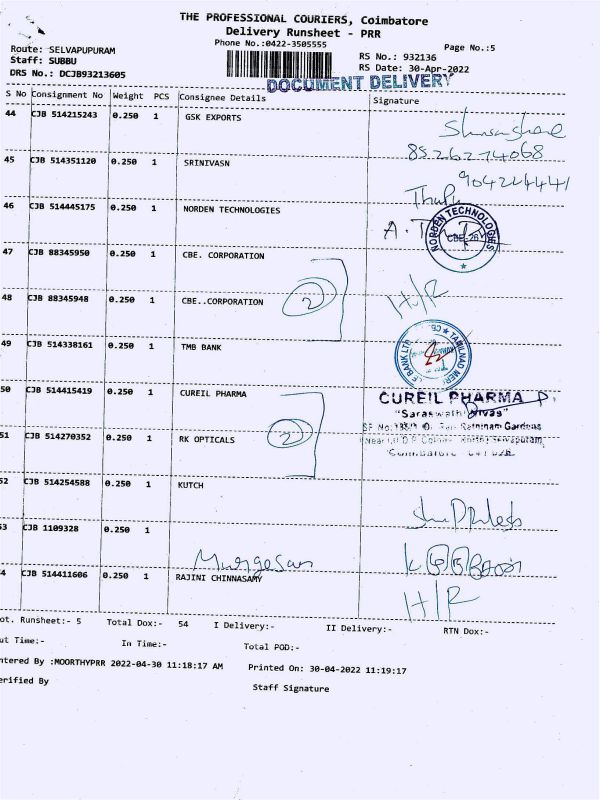 THE PROFESSIONAL COURIERS, Coimbatore
Delivery Runsheet - PRR
Phone No.:0422-3505555
Page No.:5
Route: SELVAPUPURAM
Staff: SUBBU
DRS No.: DCJB93213605
RS No.: 932136
RS Date: 30-Apr-2022
DOCUMENT DELIVERY
S No Consignment No Weight PCS Consignee Details Signature
44 CJB 514215243 0.250 1 GSK EXPORTS
8526274068
45 CJB 514351120 0.250 1 SRINIVASN
904244441
46 CJB 514445175 0.250 1 NORDEN TECHNOLOGIES
A.
NORDEN TECHNOLOGIES
CBE-26
47 CJB 88345950 0.250 1 CBE. CORPORATION
2
48 CJB 88345948 0.250 1 CBE..CORPORATION
H/R
49 CJB 514338161 0.250 1 TMB BANK
50 CJB 514415419 0.250 1 CUREIL PHARMA
CUREIL PHARMA
"Saraswathi Nivas"
Gardens
2
51 CJB 514270352 0.250 1 RK OPTICALS
52 CJB 514254588 0.250 1 KUTCH
53 CJB 1109328 0.250 1
Murgesan
4 CJB 514411606 0.250 1 RAJINI CHINNASAMY
H/R
ot. Runsheet:- 5 Total Dox:- 54 I Delivery:- II Delivery:- RTN Dox:-
ut Time:- In Time:- Total POD:-
ntered By :MOORTHYPRR 2022-04-30 11:18:17 AM Printed On: 30-04-2022 11:19:17
erified By
Staff Signature